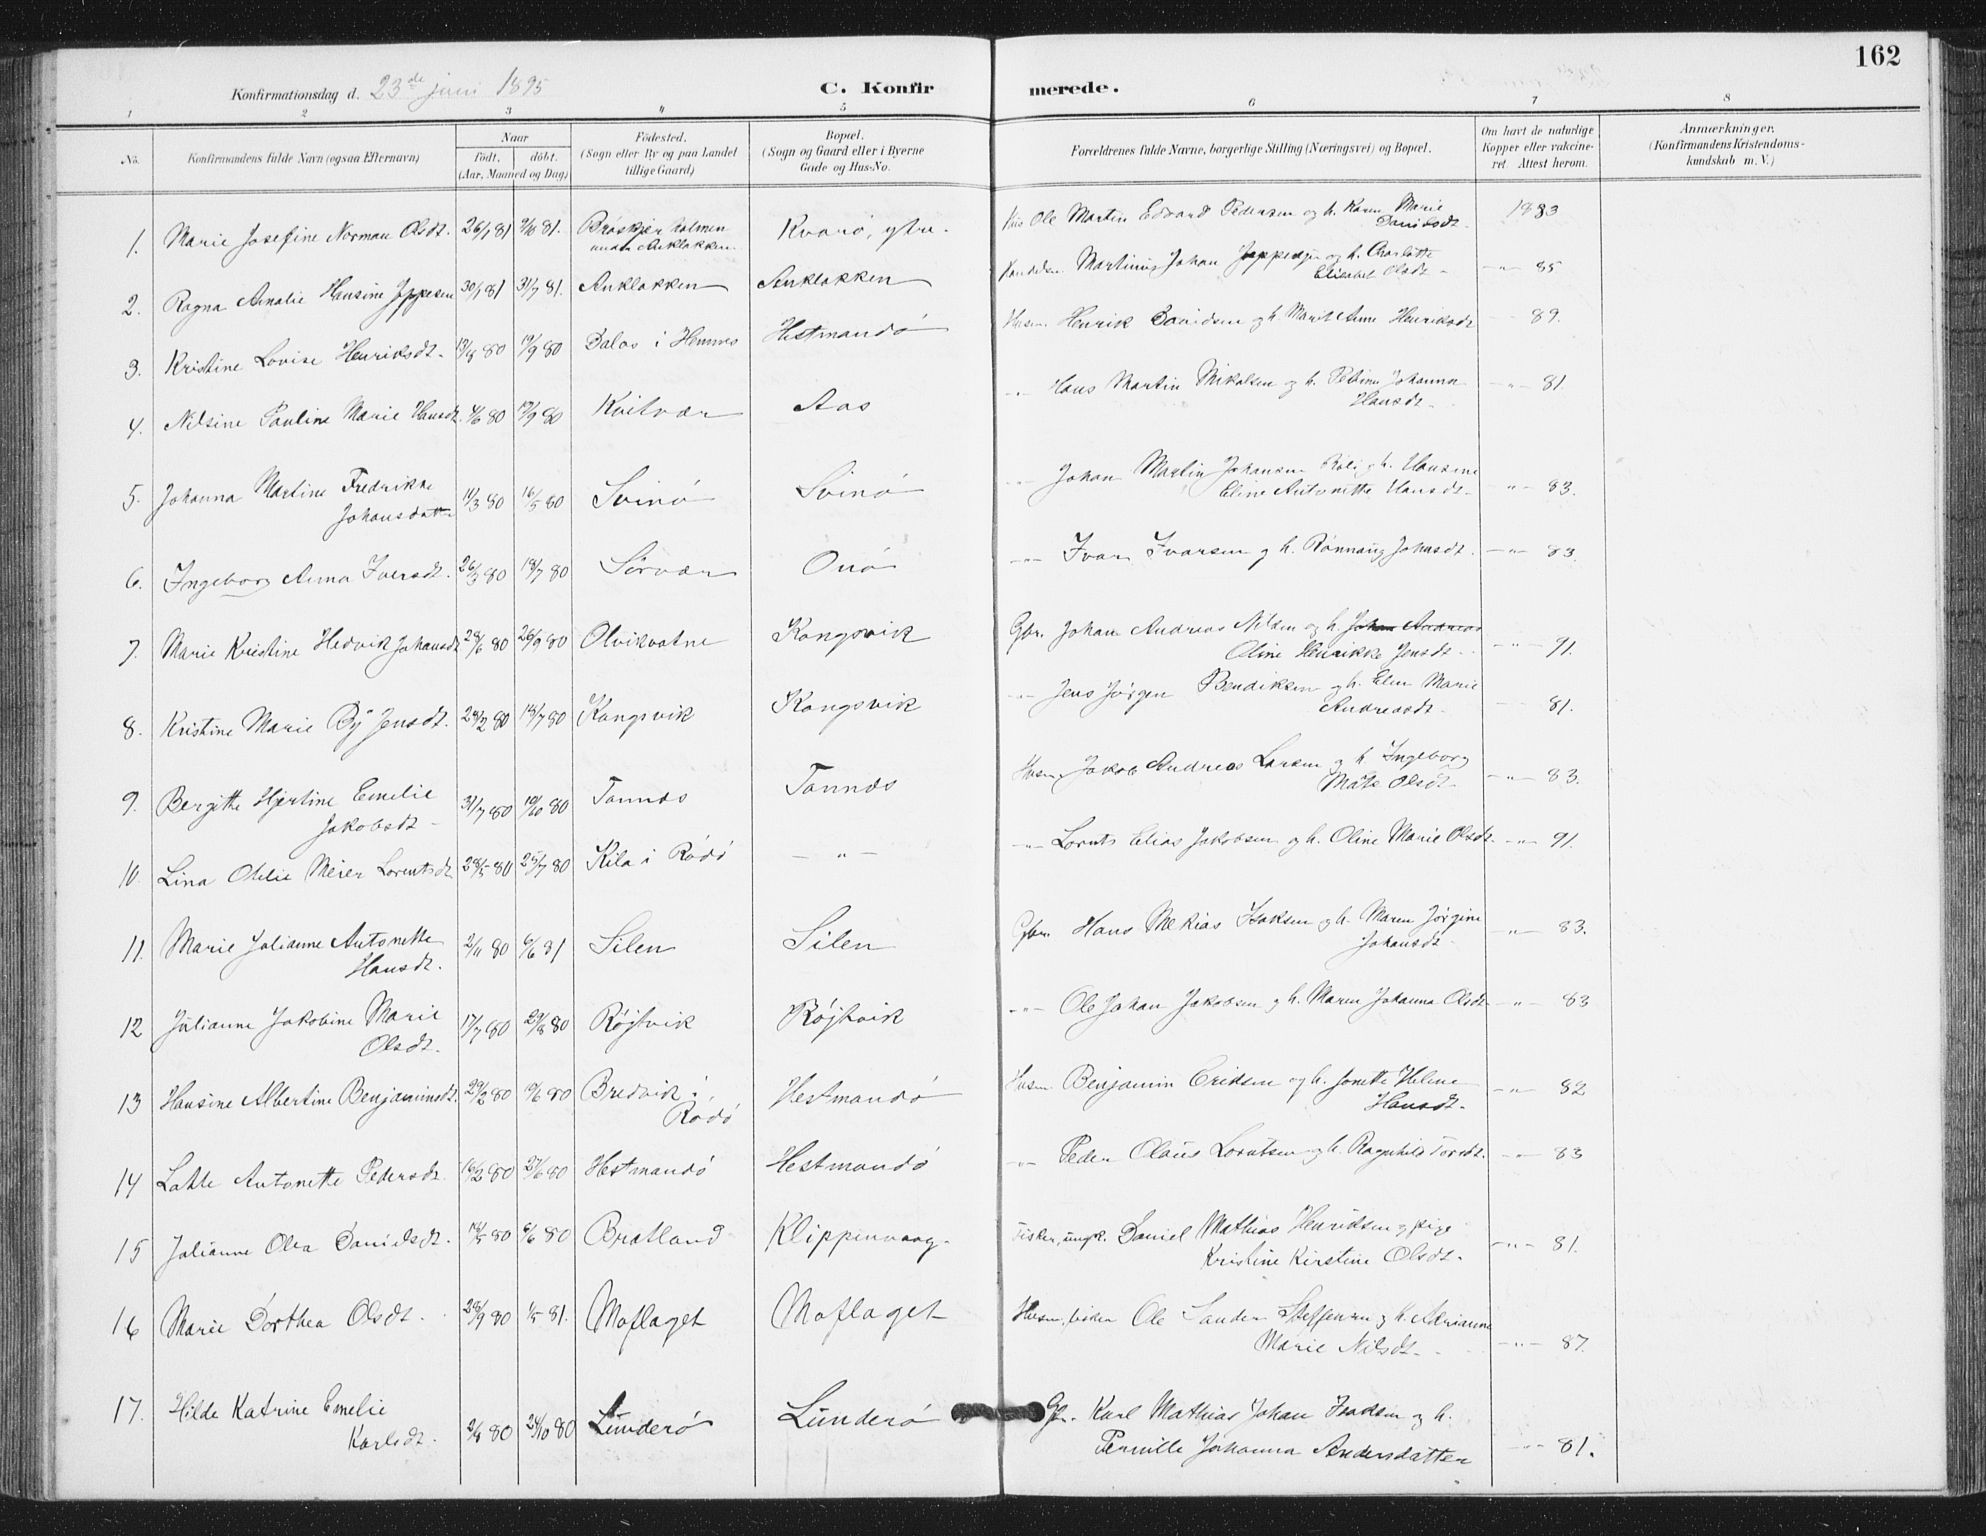 162
Konfirmationsdag d. 23de juni 1895 C. Konfirmerede.
1 2 3 4 5 6 7 8
No. Konfirmandens fulde Navn (ogsaa Efternavn) Naar født, døbt. (Aar, Maaned og Dag) Fødested. (Sogn eller By og paa Landet tillige Gaard) Bopæl. (Sogn og Gaard eller i Byerne Gade og Hus-No. Forældrenes fulde Navne, borgerlige Stilling (Næringsvei) og Bopæl. Om havt de naturlige Kopper eller vakcineret. Attest herom. Anmærkninger. (Konfirmandens Kristendomskundskab m. V.)
1. Marie Josefine Norman Olsdt. 26/1 81 9/10 81. holmen under Anklakken Kvarø, ytre. Ole Martin Edvard Pedersen og h. Karen Marie Danielsdt. 1883
2. Ragna Amalie Hansine Jeppesen 30/1 81 31/7 81. Anklakken Anklakken Martinus Johan Jeppesen og h. Charlotte Elisabet Olsdt. -"- 85
3. Kristine Lovise Henriksdt. 13/8 80 19/9 80 Dalos i Hemnes Hestmandø Husm. Henrik Davidsen og h. Marit Anne Henriksdt -"- 89.
4. Nilsine Pauline Marie Hansdt. 4/6 80 19/9 80 Kvitvær Aas -"- Hans Martin Mikalsen og h. Petrine Johanna Hansdt. -"- 81
5. Johanna Martine Fredrikke Johansdatter 14/3 80 16/5 80 Svinø Svinø -"- Johan Martin Johansen og h. Hansine Eline Antonette Hansdt. -"- 83.
6. Ingeborg Anna Iversdt. 26/3 80 18/7 80 Sørvær Onø -"- Ivar Ivarsen og h. Rønnaug Johasdt. -"- 83.
7. Marie Kristine Hedvik Johansdt 28/6 80 26/9 80 Olvikvatne Kongsvik Gbr. Johan Andreas Nilsen og h. Johan Andreas Oline Henrikke Jensdt. -"- 91.
8. Kristine Marie By Jensdt. 28/2 80 18/7 80 Kongsvik Kongsvik -"- Jens Jørgen Bendiksen og h. Elen Marie Andreasdt. -"- 81.
9. Bergitte Hjertine Emelie Jakobsdt. 31/7 80 10/10 80 Tonnes Tonnes Husm. Jakob Andreas Larsen og h. Ingeborg Mate Olsdt. -"- 83.
10. Lina Otelie Meier Lorentsdt 28/5 80 25/7 80 Kila i Rødø -"- -"- Lorents Elias Jakobsen og h. Oline Marie Olsdt. -"- 91.
11. Marie Julianne Antonette Hansdt. 2/11 80 6/6 81 Silen Silen Gbr. Hans Mekias Isaksen og h. Maren Jørgine Johansdt. -"- 83.
12 Julianne Jakobine Marie Olsdt. 17/7 80 29/8 80 Røjtvik Røjtvik -"- Ole Johan Jakobsen og h. Maren Johanna Olsdt -"- 83
13 Hansine Albertine Benjaminsdt. 29/2 80 19/6 80 Bredvik i Rødø Hestmandø Husm. Benjamin Eriksen og h. Jonette Helene Hansdt. -"- 82
14 Lotte Antonette Pedersdt. 16/2 80 27/6 80 Hestmandø Hestmandø -"- Peder Olaus Lorntsen og h. Ragnhild Torsdt. -"- 83
15 Julianne Olea Danielsdt. 18/5 80 6/6 80 Bratland Klippinvaag. Fisker, ungk. Daniel Mathias Henriksen og pige Kristine Kirstine Olsdt. -"- 81.
16 Marie Dorthea Olsdt. 28/9 80 1/5 81. Moflaget Moflaget Husm., fisker Ole Sander Steffensen og h. Adrianne Marie Nilsdt. -"- 87.
17. Hilde Katrine Emelie Karlsdt. 2/8 80 24/10 80 Lunderø Lunderø Gbr. Karl Mathias Johan Isaksen og h. Pernille Johanna Andersdatter -"- 81.